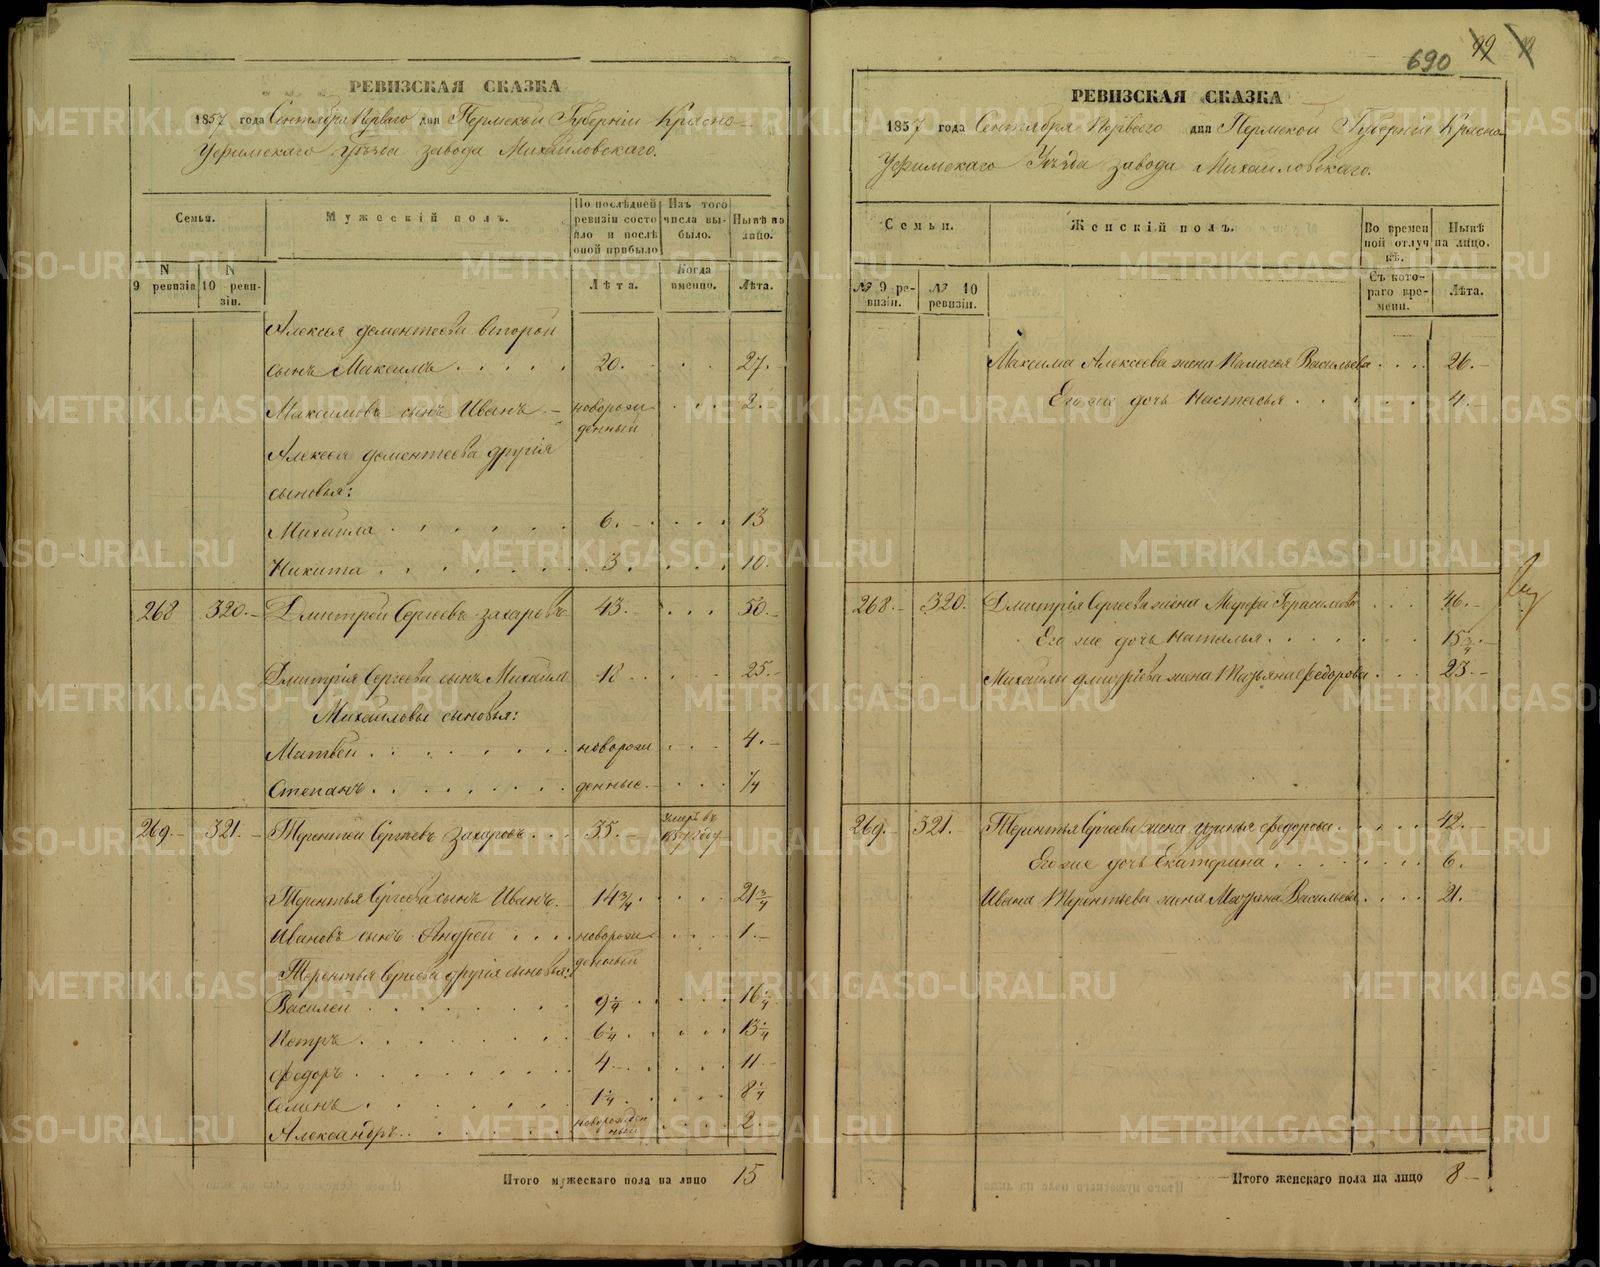 РЕВИЗСКАЯ СКАЗКА
1857 года Сентября Перваго дня Пермской Губерніи Красно-
Уфимскаго Уѣзда завода Михайловскаго.
Семьи.
Мужескій полъ.
По послѣдней ревизіи состояло и послѣ оной прибыло
Изъ того числа выбыло.
Нынѣ на лицо.
N 9 ревизіи
N 10 ревизіи.
Лѣта.
Когда именно.
Лѣта.
Алексея Доментеева второй
сынъ Максимъ 20. 27.
Максимовъ сынъ Иванъ новорожденный 2.
Алексея Доментеева другія
сыновья:
Михаила 6. 13
Никита 3. 10.
268 320. Дмитрей Сергеевъ Захаровъ 43. 50.
Дмитрія Сергеева сынъ Михаила 18 25.
Михайловы сыновья:
Матвей новорож 4.
Степанъ денные 1/4
269. 321. Терентей Сергеевъ Захаровъ 35.
Терентья Сергеева сынъ Иванъ. 14 3/4 21 3/4
Ивановъ сынъ Андрей новорож 1.
Терентья Сергеева другія сыновья: денный
Василей 9 1/4 16 1/4
Петръ 6 1/4 13 1/4
Федоръ 4 11
Семенъ 1 1/4 8 1/4
Александръ новорожденный 2.
Итого мужескаго пола на лицо 15
690
РЕВИЗСКАЯ СКАЗКА
1857 года Сентября Перваго дня Пермской Губерніи Красно
Уфимскаго Уѣзда завода Михайловскаго.
Семьи.
Женскій полъ.
Во временной отлучкѣ.
Нынѣ на лицо.
№ 9 ревизіи.
№ 10 ревизіи.
Съ котораго времени.
Лѣта.
Максима Алексеева жена Палагья Васильева 26.
Его же дочь Настасья 4.
268. 320. Дмитрія Сергеева жена Герасимова 46.
Его же дочь Наталья 15 3/4.
Михаила Дмитріева жена Татьяна Федорова 23.
269. 321. Терентья Сергеева жена Федорова 42.
Его же дочь Екатерина 6.
Ивана Терентьева жена Матрена Васильева 21.
Итого женскаго пола на лицо 8
METRIKI.GASO-URAL.RU